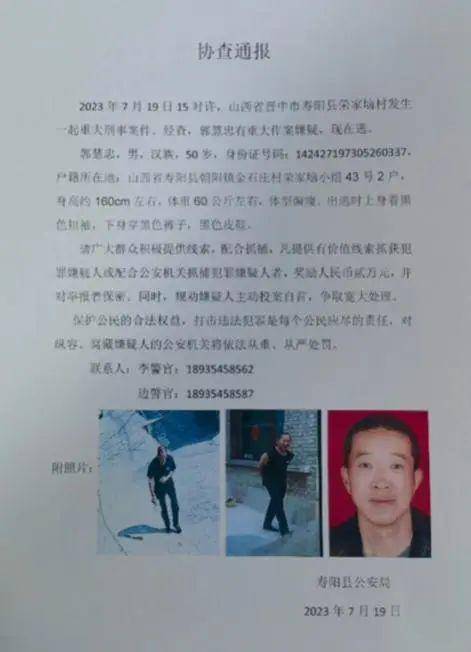 协查通报
2023 年 7 月 19 日 15 时许，山西省晋中市寿阳县荣家垴村发生
一起重大刑事案件。经查，郭慧忠有重大作案嫌疑，现在逃。
郭慧忠，男，汉族，50 岁，身份证号码：142427197305260337，
户籍所在地：山西省寿阳县朝阳镇金石庄村荣家垴小组 43 号 2 户，
身高约 160cm 左右，体重 60 公斤左右，体型偏瘦。出逃时上身着黑
色短袖，下身穿黑色裤子，黑色皮鞋。
请广大群众积极提供线索，配合抓捕，凡提供有价值线索抓获
犯罪嫌疑人或配合公安机关抓捕犯罪嫌疑人者，奖励人民币贰万元，并
对举报者保密。同时，规劝嫌疑人主动投案自首，争取宽大处理。
保护公民的合法权益，打击违法犯罪是每个公民应尽的责任，对
纵容、窝藏嫌疑人的公安机关将依法从重、从严处罚。
联系人：李警官：18935458562
边警官：18935458587
附照片：
寿阳县公安局
2023 年 7 月 19 日